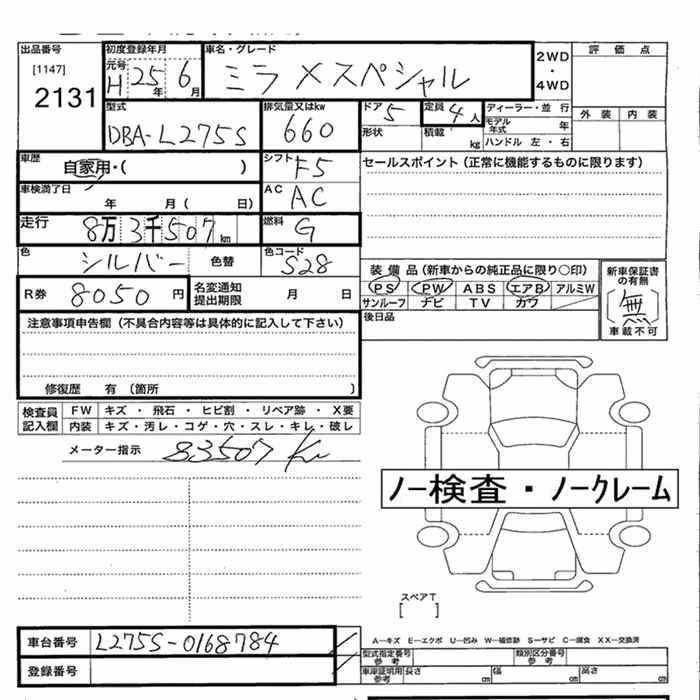 出品番号 初度登録年月 車名・グレード
[1147] 元号 H 25年 6月 ミラ メスペシャル 2WD・4WD 評価点
2131
型式 排気量又はkw ドア 5 定員 4人 ディーラー・並行 外装 内装
DBA-L275S 660 形状 積載 kg モデル年式 年
ハンドル 左・右
車歴 自家用・( ) シフト F5 セールスポイント (正常に機能するものに限ります)
車検満了日 年 月( 日) AC AC
走行 8万3千507km 燃料 G
色 シルバー 色替 色コード S28
装備品 (新車からの純正品に限り○印) 新車保証書の有無
R券 8050円 名変通知提出期限 月 日 PS PW ABS エアB アルミW [無]
サンルーフ ナビ TV カワ 車載不可
注意事項申告欄 (不具合内容等は具体的に記入して下さい) 後日品
修復歴 有 (箇所 )
検査員記入欄 FW キズ・飛石・ヒビ割・リペア跡・X要
内装 キズ・汚レ・コゲ・穴・スレ・キレ・破レ
メーター指示 83507 Km
ノー検査・ノークレーム
スペアT
[ ]
車台番号 L275S-0168784 A―キズ E―エクボ U―凹み W―補修跡 S―サビ C―腐食 XX―交換済
登録番号 型式指定番号 参考 類別区分番号 参考
車庫証明用 参考 長さ cm 幅 cm 高さ cm